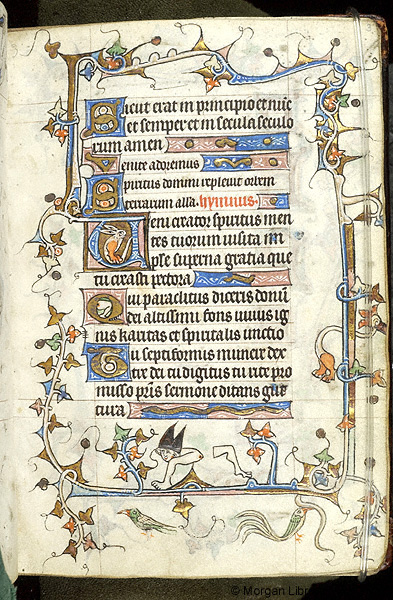 Sicut erat in principio et nuc
et semper et in secula seculo
rum amen
Venite adoremus
Spiritus domini repleuit orbem
terrarum alla. hymnus.
Veni creator spiritus men
tes tuorum uisita im
ple superna gratia que
tu creasti pectora
Qui paraclitus diceris donū
dei altissimi fons uiuus ig
nis karitas et spiritalis unctio
Tu septiformis munere dex
tre dei tu digitus tu rite pro
misso pr̄is sermone ditans gut
tura
© Morgan Libr